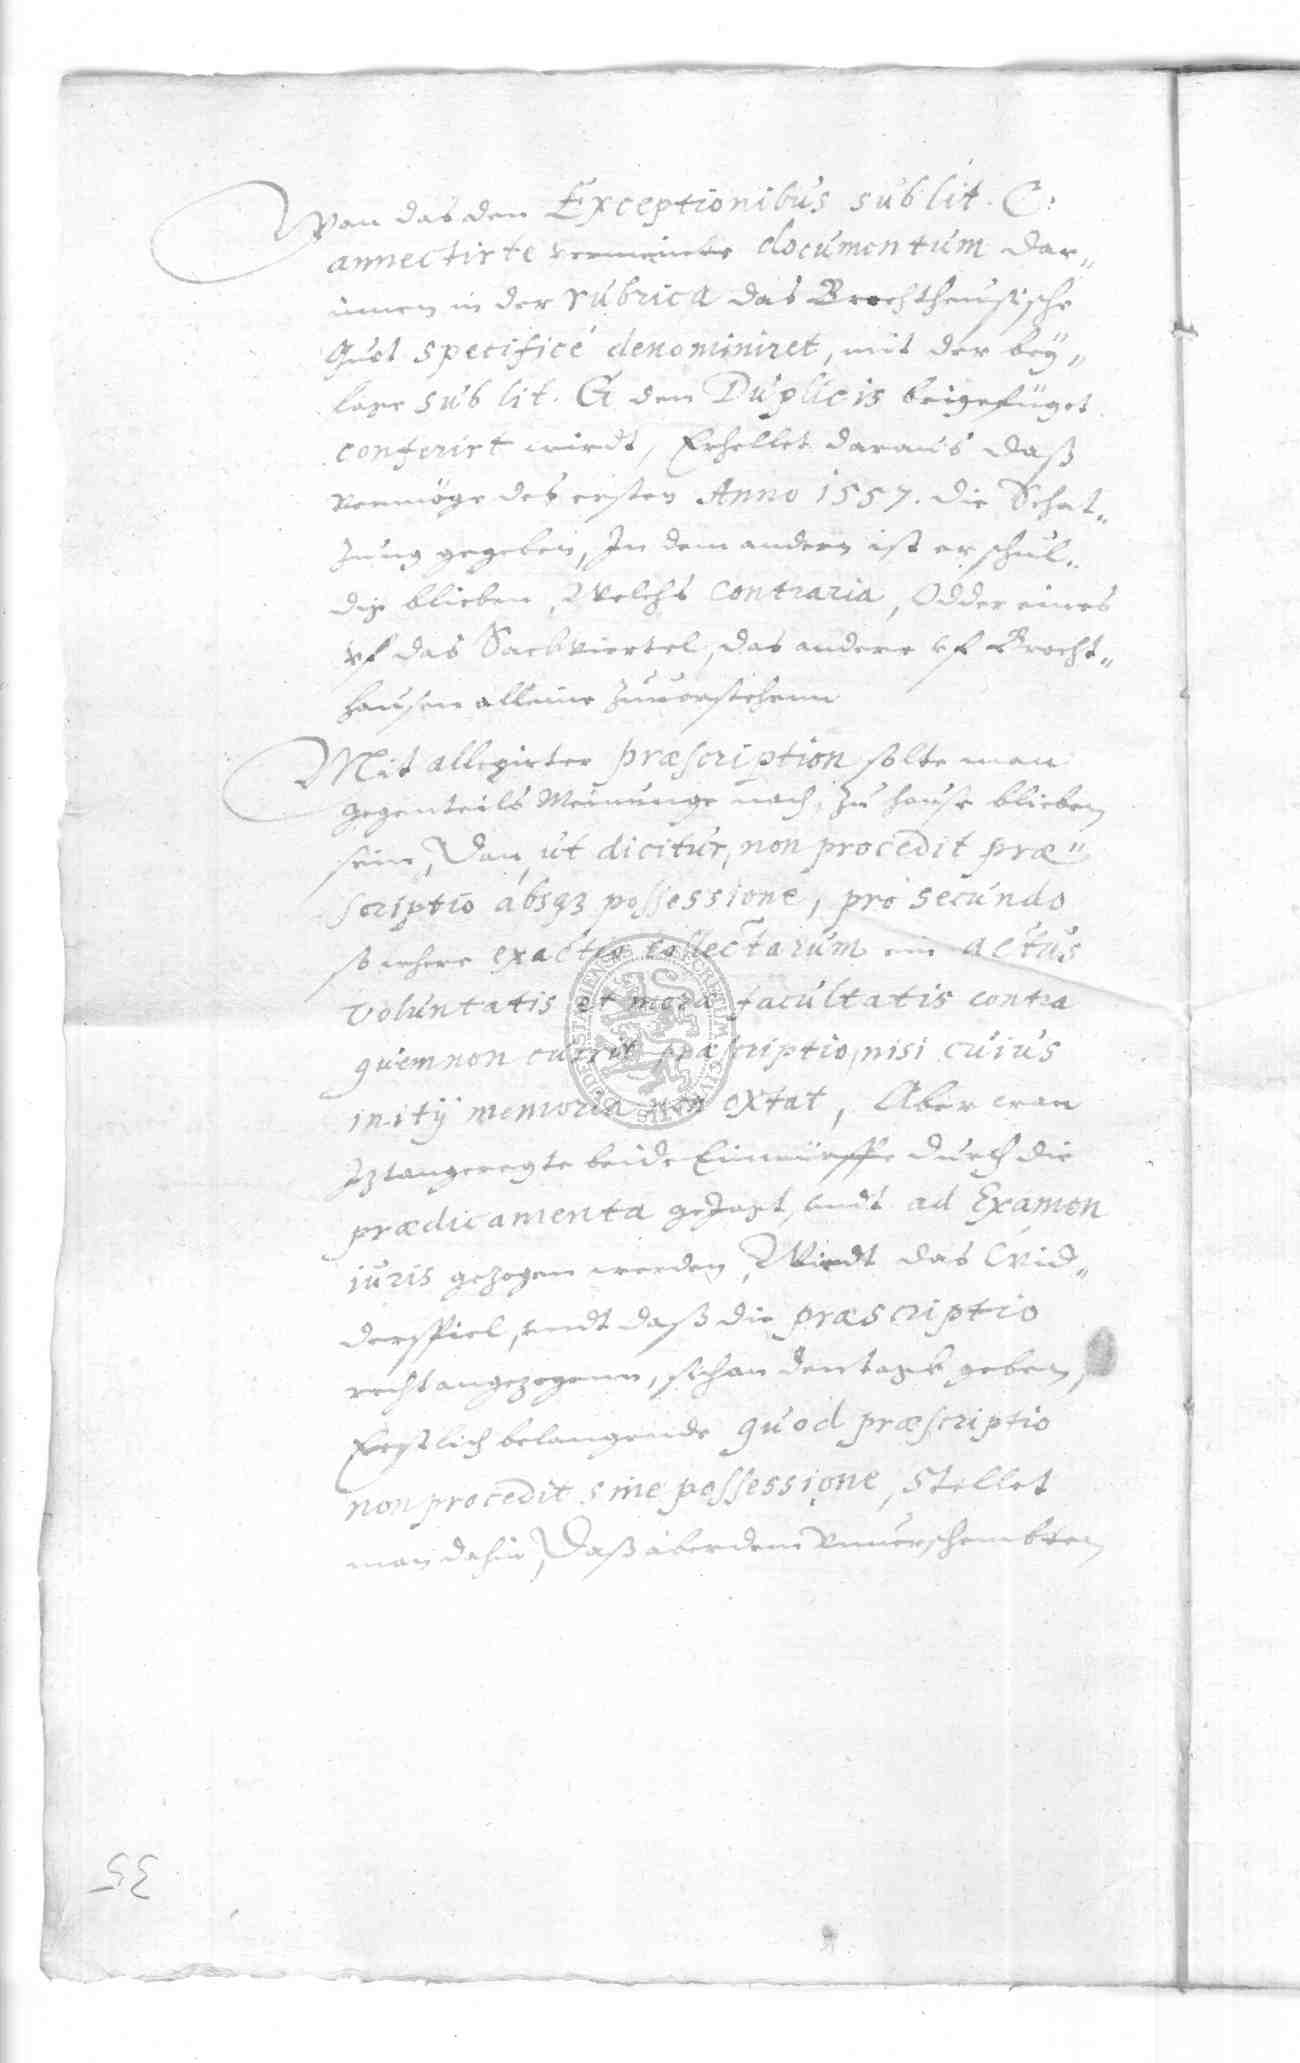 Wan das den Exceptionibus sub lit. C:
annectirte vermeinte documentum dar„
innen in der rubrica das Brochtheusische
Guet specificé denominiret, mit der bey„
lage sub lit. G den Duplicis beigefüget
conferirt wirdt, Erhellet daraus daß
vermöge des ersten Anno 1557. die Schat„
zung gegeben, In dem andern ist er schul„
dig blieben, Welchs contraria, Odder eines
vf das Sackviertel, das andere vf Brocht„
hausen alleine zuuorstehenn
Mit allegirter præscription solte man
gegenteils Meinunge nach, zu hause blieben
sein, Dan, ut dicitur, non procedit præ„
scriptio absqз possessione, pro secundo
so wehre exactio collectarum ein actus
voluntatis et meræ facultatis contra
quem non currit præscriptio, nisi cuius
initij memoria non extat, Aber wan
Iztangeregte beide Einwürffe durch die
prædicamenta gejagt, undt ad Examen
iuris gezogen werden, Wirdt das Wid„
derspiel, undt daß die præscriptio
recht angezogenn, sich an den tagk geben,
Erstlich belangende quod præscriptio
non procedit sine possessione, Stellet
man dahin, Daß aber dem vnuerschembten
55